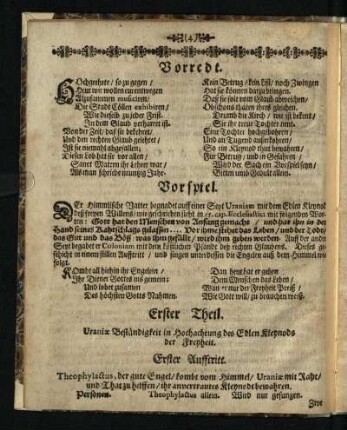 (4)
Vorredt.
Hochgeehrte / so zu gegen /
Heut wir wollen
Allzusammen
Die Stadt Cöllen exhibiren /
Wie dieselb zu jeder Frist
In dem Glaub verharret ist.
Von der Zeit / daß sie bekehret /
Und den rechten Glaub gelehret /
Ist sie niemahls abgefallen /
Diesen Lob hat sie vor allen /
Als man schriebe neuntzig Jahr.
Kein Betrug / kein List / noch Zwingen
Hat sie können darzu bringen /
Daß sie solt vom Glaub abweichen /
Drumb die Kirch / wie ist bekent /
Sie ihr treue Tochter nent.
Eine Tochter hochgebohren /
Und an Tugend außerkohren /
So ein Kleynod thut bewahren /
Für Betrug / und in Gefahren /
Wird der Sach ein Vorspiel seyn /
Bitten umb Gedult allein.
Vorspiel.
DEr Himmlische Vatter begnadet auff einer Seyt Uraniam mit dem Edlen Kleynod
deß freyen Willens / mit
ten: Gott hat den Menschen von Anfang gemacht / und hat ihn in der
Hand seines Rahtschlags gelassen.... Vor ihme stehet das Leben / und der Todt /
das Gut und das Böß / was ihm gefällt / wird ihm geben werden. Auff der andern
Seyt begabet er Coloniam mit dem köstlichen Pfande deß rechten Glaubens. Dieses ge-
schicht in einem stillen Aufftritt / und singen unterdessen die Engelen auß dem Himmel wie
folgt.
KOmbt all hiehin ihr Engelein /
Ihr Diener Gottes ins gemein;
Und lobet zusamen
Des höchsten Gotts Nahmen.
Dan heut hat er geben
Dem Menschen das Leben /
Wan er nur der Freyheit Preiß /
Wie Gott will / zu brauchen weiß.
Erster Theil.
Uraniæ Beständigkeit in Hochachtung des Edlen Kleynods
der Freyheit.
Erster Aufftritt.
Theophylactus, der gute Engel / kombt vom Himmel / Uraniæ mit Raht /
und That zu helffen / ihr anvertrautes Kleynodt bewahren.
Personen. Theophylactus allein. Wird nur gesungen.
Zwe